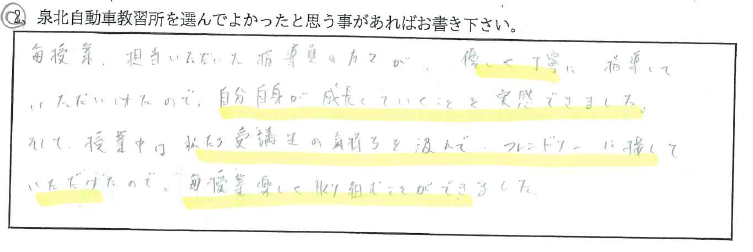 2. 泉北自動車教習所を選んでよかったと思う事があればお書き下さい。
毎授業、担当いただいた指導員の方々が、優しく丁寧に指導して
いただいけたので、自分自身が成長していくことを実感できました。
そして、授業中は私たち受講生の気持ちを汲んで、フレンドリーに接して
いただけたので、毎授業楽しく取り組むことができました